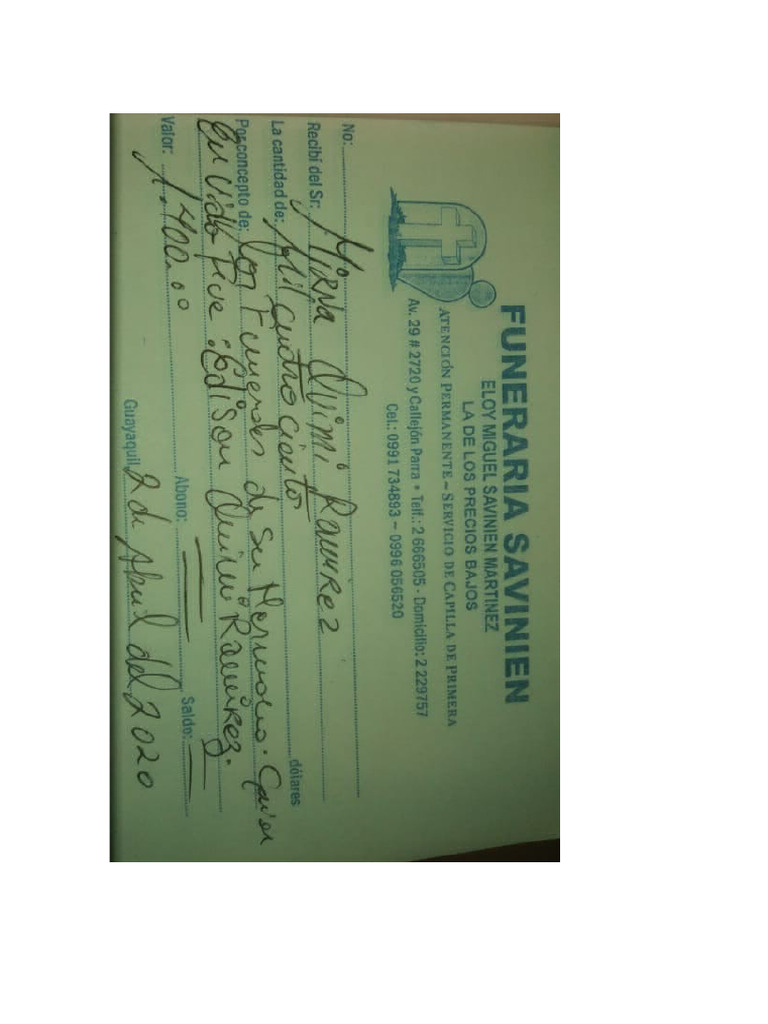 FUNERARIA SAVINIEN
ELOY MIGUEL SAVINIEN MARTINEZ
LA DE LOS PRECIOS BAJOS
ATENCIÓN PERMANENTE – SERVICIO DE CAPILLA DE PRIMERA
Av. 29 # 2720 y Callejón Parra * Telf.: 2 666505 - Domicilio: 2 229757
Cel.: 0991 734893 – 0996 056520
No:
Recibí del Sr: Mirna Quimi Ramirez
La cantidad de: Mil cuatrociento dólares
Por concepto de: los Funerales de su Hermano. Quien
En vida Fue: Edison Quimi Ramirez.
Valor: 1.400.00 Abono: Saldo:
Guayaquil 2 de Abril del 2020